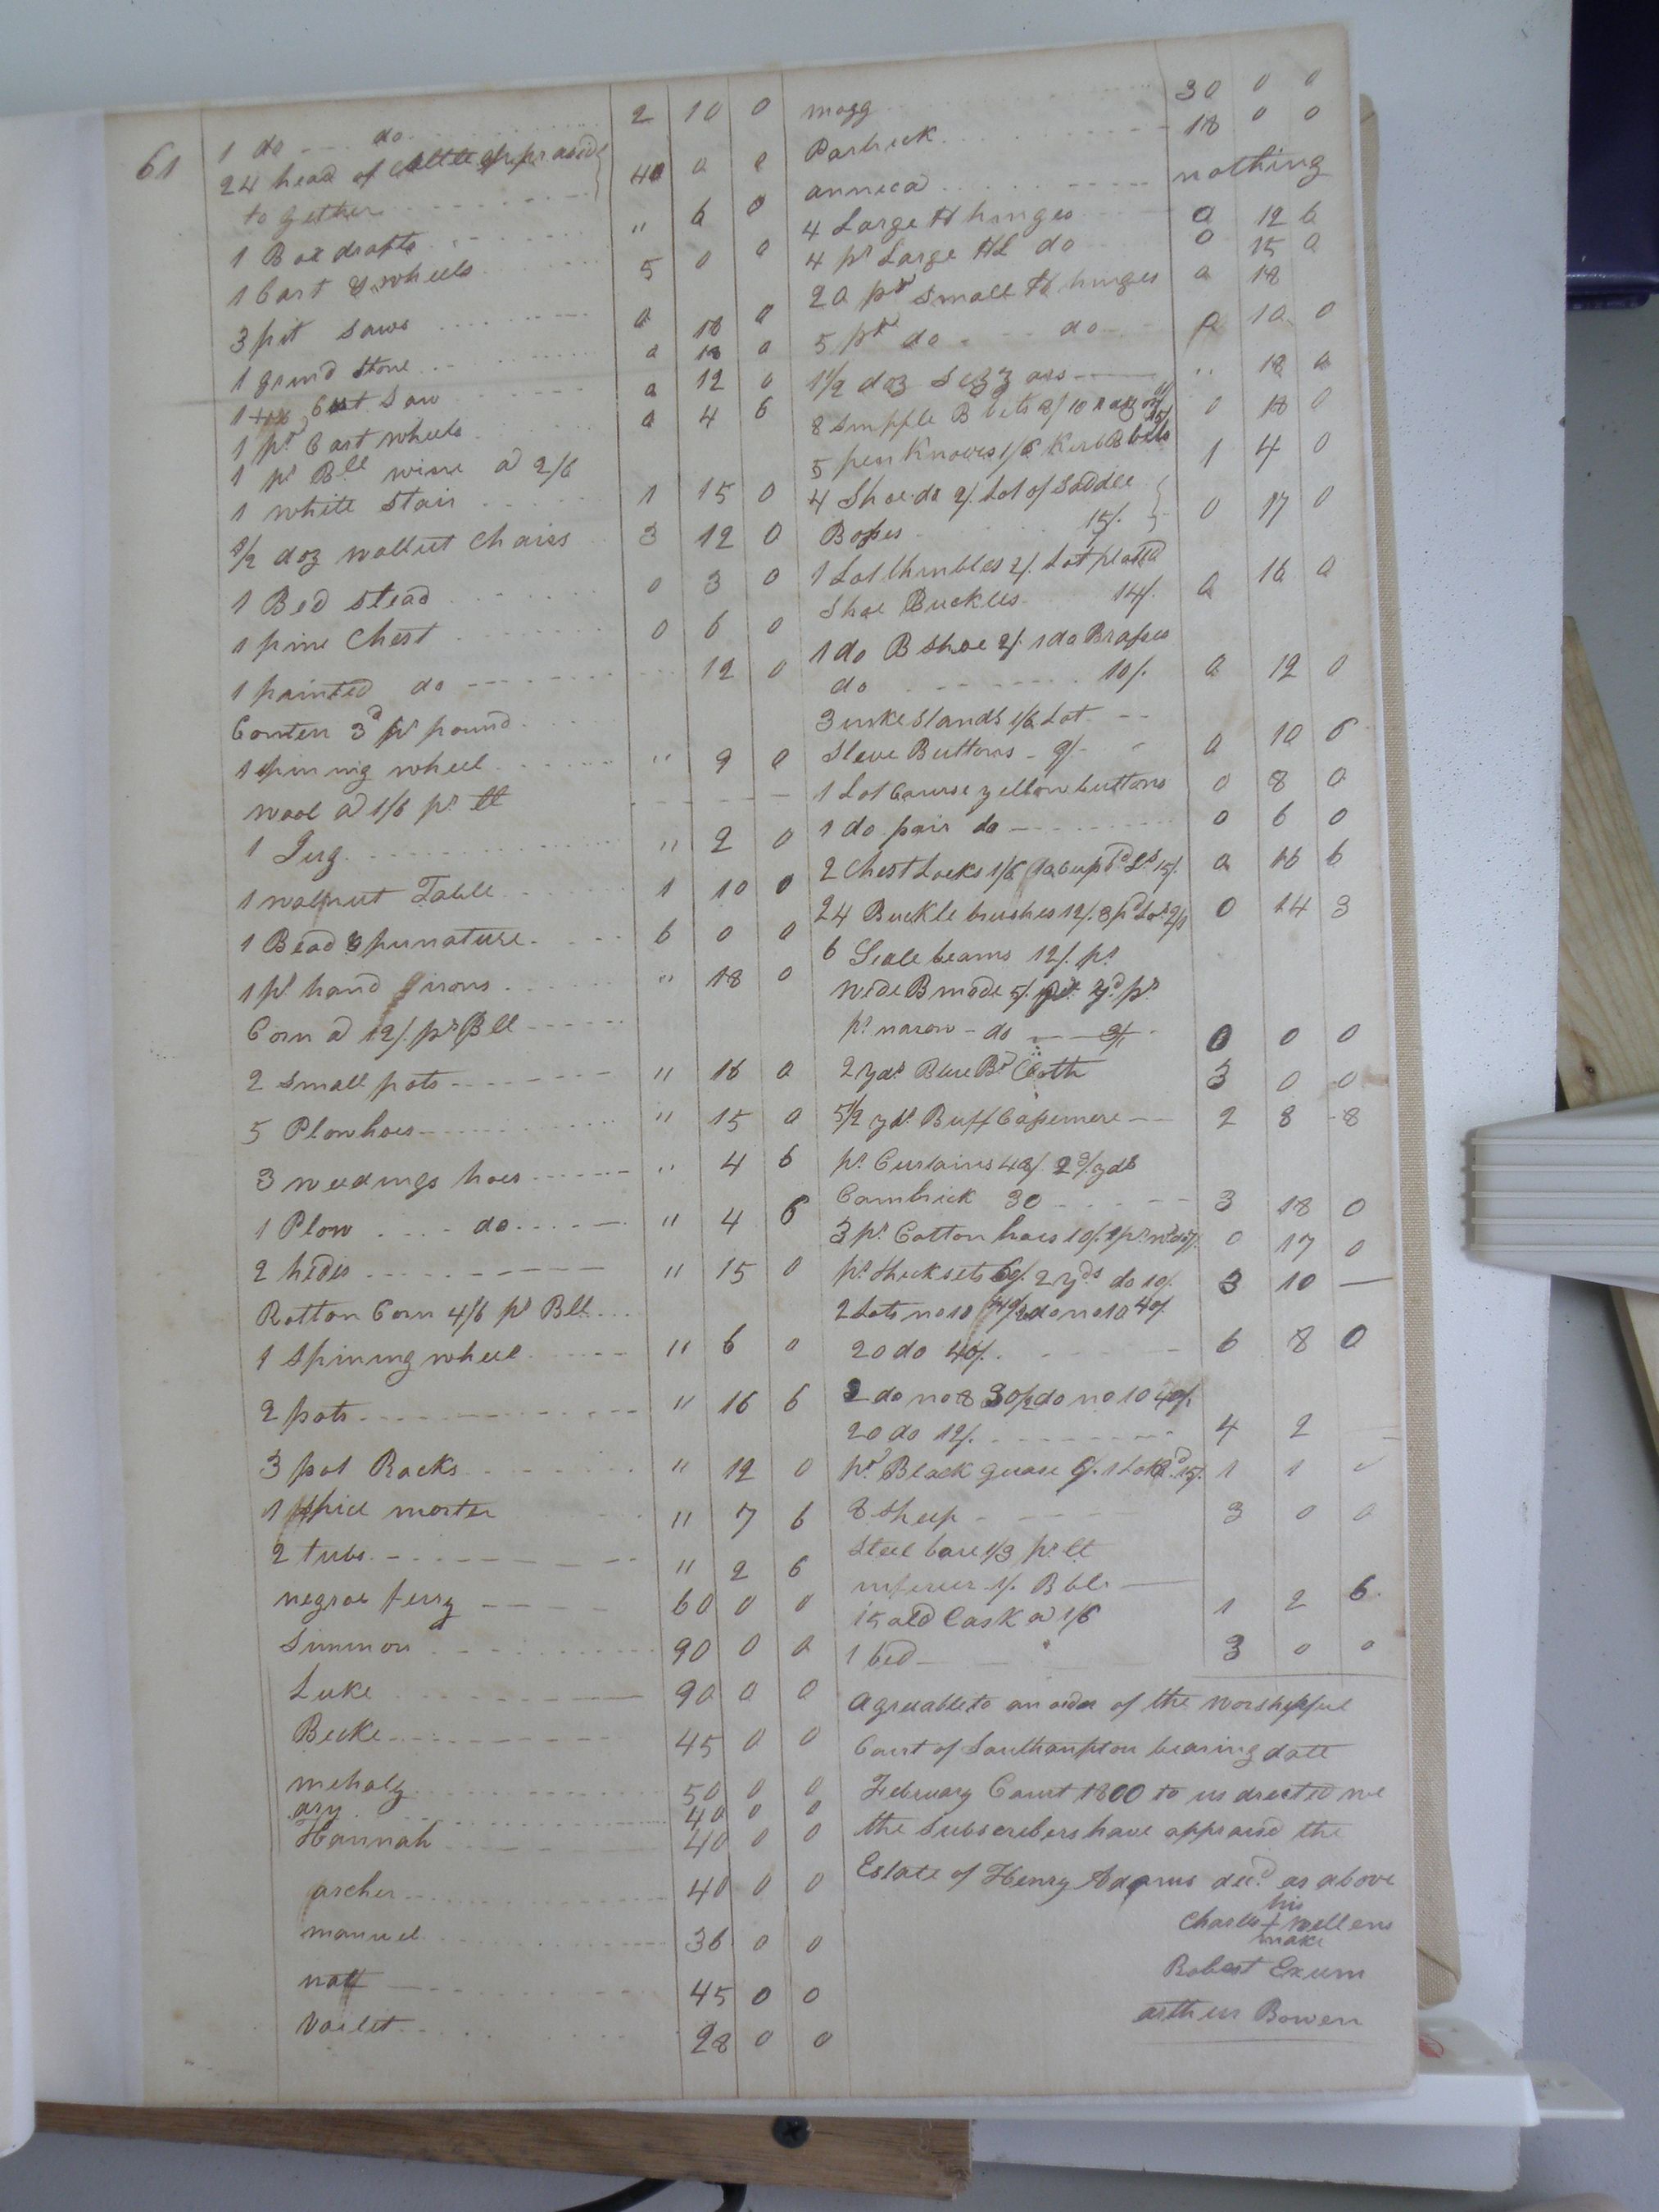 61
1 do do 2 10 0
24 head of Cattle appraised
together 40 0 0
1 Box drafts " 6 0
1 Cart & wheels 5 0 0
3 pit Saws 0 18 0
1 grind Stone 0 18 0
1 Cut Saw 0 12 0
1 pr Cart wheels 0 4 6
1 pr Bll wine a 2/6
1 white Stair 1 15 0
1/2 doz wallnut Chairs 3 12 0
1 Bed Stead 0 3 0
1 pine Chest 0 6 0
1 painted do 12 0
Conten 3d pr pound
1 spinnig wheel " 9 0
Wool a 1/6 pr lt
1 Jug " 2 0
1 walnut Table 1 10 0
1 Bead & punature 6 0 0
1 pr hand irons " 18 0
Corn a 12/. pr Bll
2 small pots " 16 0
5 Plowhoes " 15 0
3 weedings hoes " 4 6
1 Plow do " 4 6
2 hides " 15 0
Rotton Corn 4/6 pr Bll
1 Spining wheel " 6 0
2 pots " 16 6
3 pot Racks " 12 0
1 Spice morter " 7 6
2 tubs " 2 6
negroe ferry 60 0 0
Simmon 90 0 0
Luke 90 0 0
Becke 45 0 0
mehaly 50 0 0
ary 40 0 0
Hannah 40 0 0
archer 40 0 0
manuel 36 0 0
natt 45 0 0
Vailet 28 0 0
mogg 30 0 0
Parbuck 18 0 0
annica nothing
4 Large H hinges 0 12 6
4 pr Large HL do 0 15 0
20 pr Small H hinges 0 18
5 pr do do 0 10 0
1 1/2 doz Sezzars " 18 0
8 Snuffle B bets 0 18 0
5 pen Knives 1/6 Kurb Bbits 1 4 0
4 Shoe do 2/. Lot of Saddle
Bosses 15/. 0 17 0
1 Lot thimbles 2/. Lot plated
Shoe Buckles 14/. 0 16 0
1 do B Shoe 2/. 1 do Brasses
do 10/. 0 12 0
3 inke Stands 1/6 Lot
Sleve Buttons 9/- 0 10 6
1 Lot Course yellow buttons 0 8 0
1 do pair do 0 6 0
2 Chest Locks 1/6 15/. 0 16 6
24 Buckle brushes 12/. 0 14 3
6 Scale beams 12/. pr
Wide B mode 5/. yd pr
pr narow do 0 0 0
2 yds Blue Bd Cloth 3 0 0
5 1/2 yds Buff Casemere 2 8 8
pr Curtains 48/. 2 3/. yds
Cambrick 30 3 18 0
3 pr Cotton hoes 10/. 0 17 0
pr thicksets 60/. 2 yds do 10/. 3 10 —
2 Lots no 10 2 do no 10 40/.
20 do 40/. 6 8 0
2 do no 8 30/. 2 do no 10 40/.
20 do 12/. 4 2 —
pr Black guase 6/. 1 Lot 15/. 1 1
8 sheep 3 0 0
Steel bare 1/3 pr lt
inferur 1/. Bbls
15 old Cask a 1/6 1 2 6
1 bed 3 0 0
Agreable to an order of the worshipful
Court of Southampton bearing date
February Court 1800 to us drected we
the Subscribers have appraisd the
Estate of Henry Adams decd as above
his
Charles + wellens
make
Robert Exum
arthur Bowen